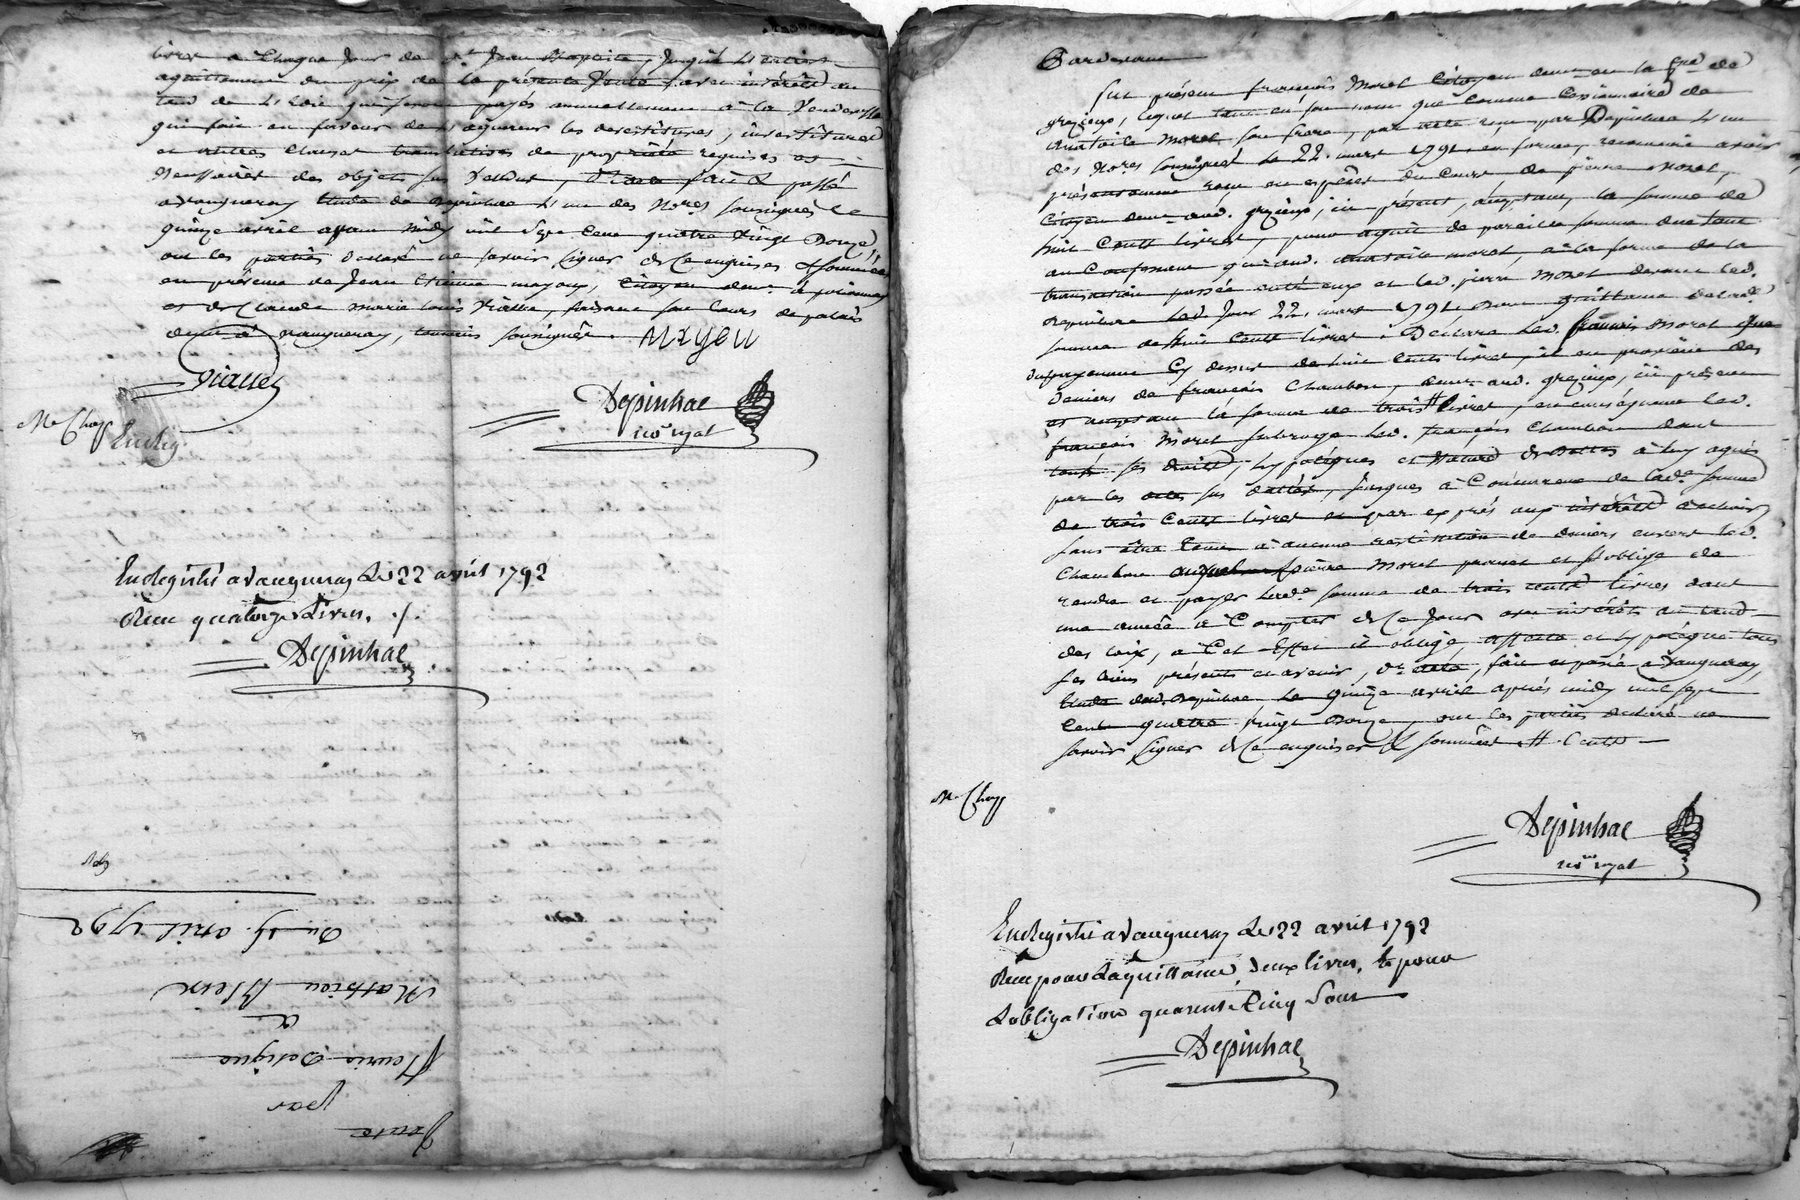 livres a Chaque Jour de St Jean Baptiste, Jusqu'à L'entier
aquittement du prix de la présente Vente, avec intérêts au
taux de L'édit qui seront payés annuellement a la Venderesse
qui fait en faveur de L'aquereur les devestitures, investitures
et autres Clauses translatives de propriété requises et
Necessaires des objets sus Vendus, D'acte fait & passé
a vaugneray Etude de Depinhac L'un des Nores soussignés Le
quinze avril avant Midy mil Sept Cent quatre Vingt Douze,
ont les parties declaré ne savoir signer de Ce enquises & sommées
en présence de Jean Etienne mayeu, Citoyen demt à
et de Claude Marie Viallet, faisant sous Cours de palais
demt à vaugneray, temoins soussignés. Mayeu
Viallet
Depinhac
nore royal
Me Chap
Enregistré a Vaugneray Le 22 avril 1792
Reçu quatorze Livres. /.
Depinhac
Vente
par
Fleurie
a
Mathieu
Du 15. avril 1792
Pardevant
fut présent françois Moret Citoyen demt en la psse de
grezieux, lequel tant en son nom que Comme Cessionnaire de
Anatoile Moret son frere, par acte reçu par Depinhac L'un
des Nores soussignés Le 22. mars 1791 en forme, reconnoit avoir
présentement reçu en espèces du Cours de pierre Moret,
Citoyen demt aud. grezieux, ici présent, aceptant, la somme de
huit Cents livres, pour aquit de pareille somme due tant
au Confessant qu'aud. Anatoile moret, à la forme de la
transaction passée entre eux et led. pierre Moret devant led.
Depinhac led. Jour 22. mars 1791 Dont quittance de lade
somme de huit Cents livres. Déclare led. françois Moret que
du payement Cy dessus de huit Cents livres, il en provient des
deniers de françois Chambon, demt aud. grezieux, ici présent
et aceptant la somme de trois # livres, en conséquence led.
françois Moret subroge led. françois Chambon dans
tous ses droits, hypotèques et Nature de Dettes à luy aquis
par les actes sus dattés, jusques à Concurrence de lade somme
de trois Cents livres et par exprés aux intérêts
sans être tenu à aucune restitution de deniers envers led.
Chambon auquel pierre Moret promet et s'oblige de
rendre et payer lade somme de trois cents livres dans
une année à Compter de Ce Jour avec intérêts au taux
des loix, à Cet Effet il oblige, affecte et hypotèque tous
ses biens présents et avenir, Dt acte, fait et passé a Vaugneray,
Etude dud. Depinhac Le quinze avril aprés midy mil sept
Cent quatre vingt Douze, ont les parties declaré ne
savoir signer de Ce enquises & sommées # Cents
Me Chap
Depinhac
nore royal
Enregistré a Vaugneray Le 22 avril 1792
Reçu pour La quittance deux livres, & pour
L'obligation quarante Cinq Sous
Depinhac